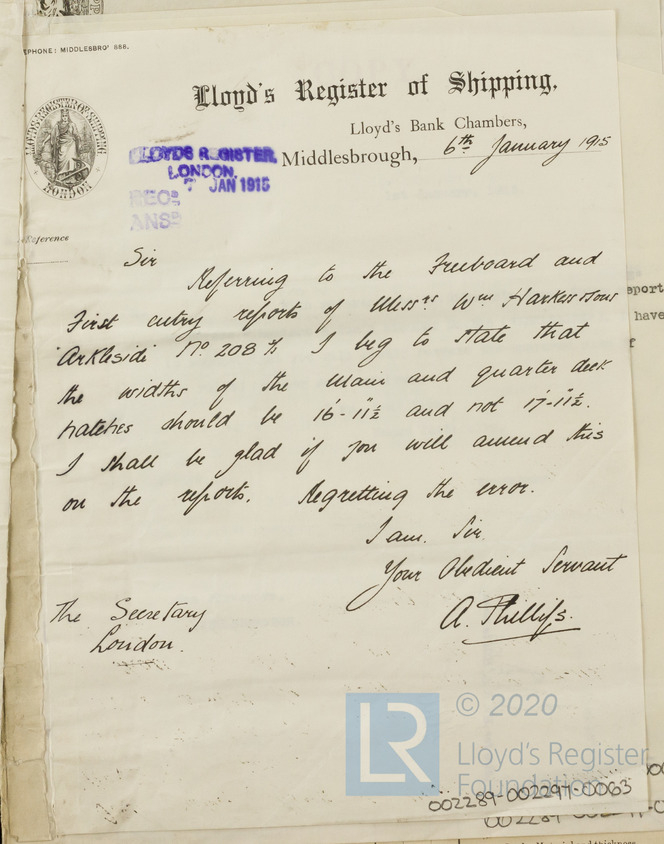 EPHONE: MIDDLESBRO' 888.
Lloyd's Register of Shipping,
Lloyd's Bank Chambers,
Middlesbrough, 6th January 1915
LLOYD'S REGISTER OF SHIPPING
LONDON
LLOYDS REGISTER,
LONDON.
7 JAN 1915
REC
ANS
Reference
Sir
Referring to the Freeboard and
First entry reports of Messrs Wm Harkess & Sons
"Arkleside" No. 208 I beg to state that
the widths of the main and quarter deck
hatches should be 16'-11½" and not 17'-11½".
I shall be glad if you will amend this
on the reports. Regretting the error.
I am. Sir.
Your Obedient Servant
A. Phillips.
The Secretary
London.
eport
have
© 2020
LR
Lloyd's Register
Foundation
002289-002297-0063